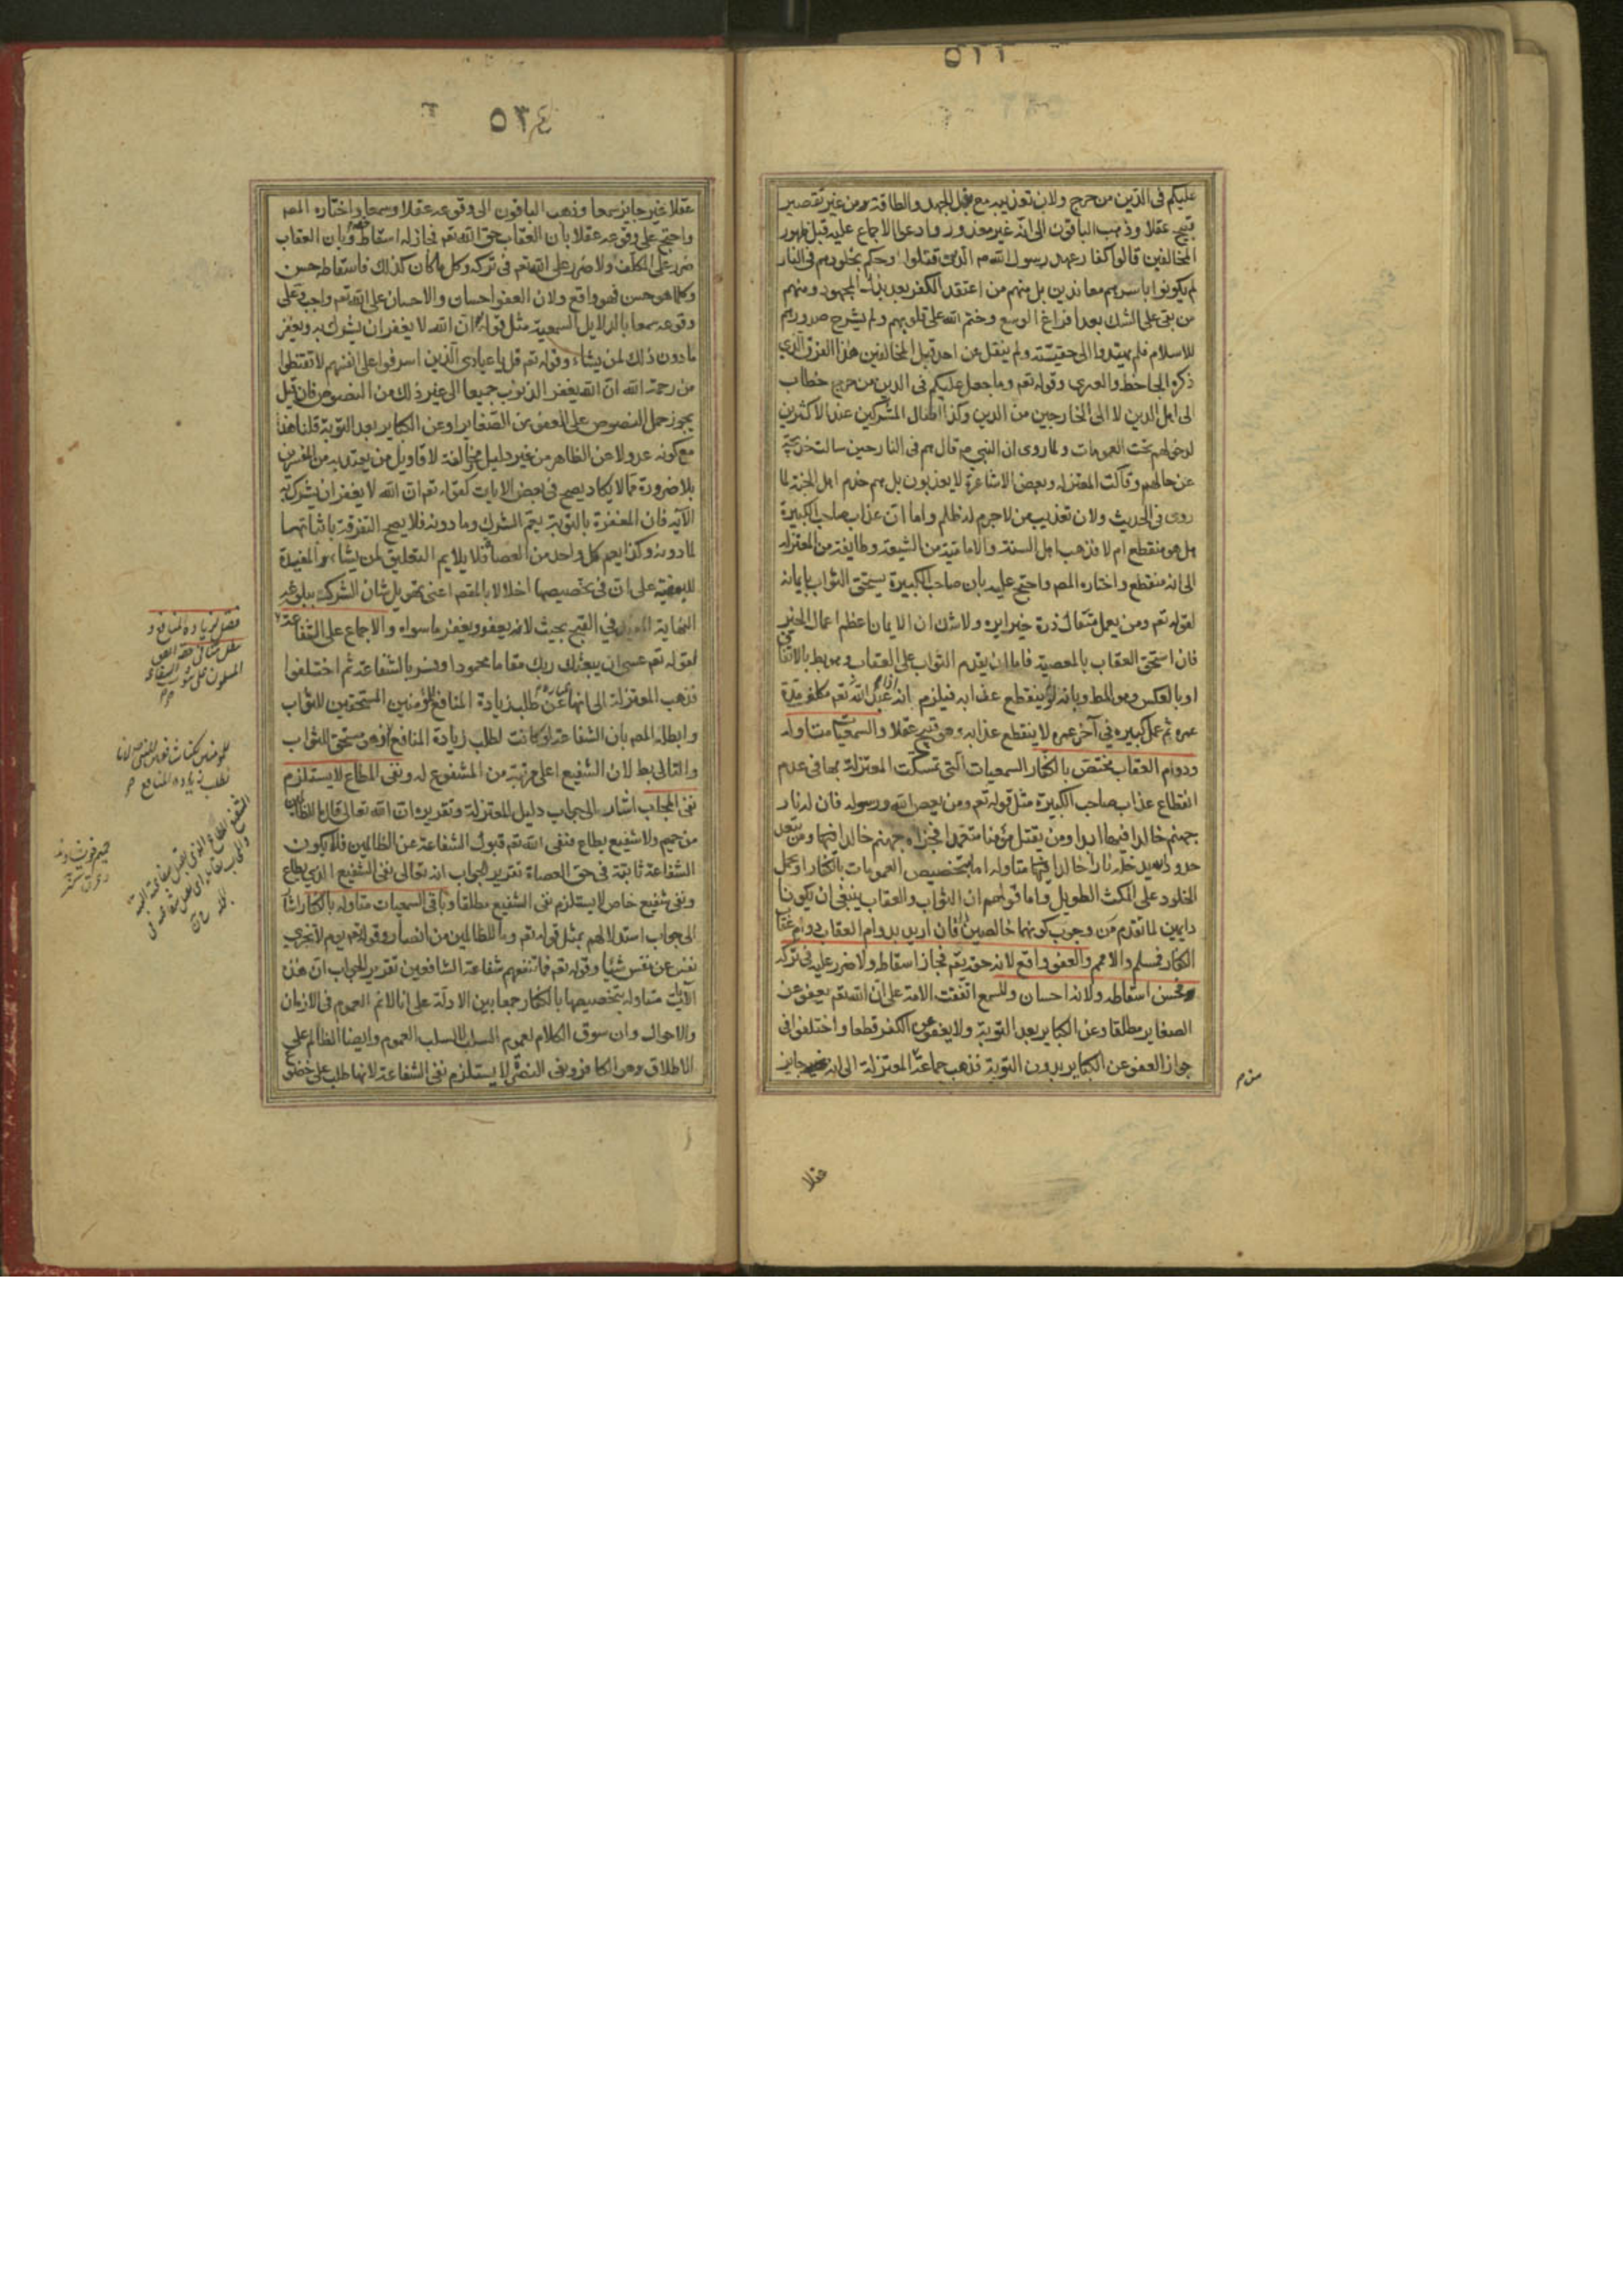 عليكم فى الدين من حرج ولان تعذيبه مع بذل الجهد والطاقة ومن غير تقصير
قبيح عقلا وذهب الباقون الى انه غير معذور وادعوا الاجماع عليه قبل ظهور
المخالفين قالوا كفار عهد رسول الله الذين قتلوا وحكم بخلودهم فى النار
لم يكونوا باسرهم معاندين بل منهم من اعتقد الكفر بعد بذل المجهود ومنهم
من بقى على الشك بعد افراغ الوسع وختم الله على قلوبهم ولم يشرح صدورهم
للاسلام فلم يهتدوا الى حقيته ولم ينقل عن احد قبل المخالفين هذا الفرق الذى
ذكره الجاحظ والعنبرى وقوله تعم وما جعل عليكم فى الدين من حرج خطاب
الى اهل الدين لا الى الخارجين من الدين وكذا اطفال المشركين عند الاكثرين
لدخولهم تحت العمومات ولما روى ان النبى م قال هم فى النار حين سالت خديجة
عن حالهم وقالت المعتزله وبعض الاشاعرة لا يعذبون بل هم خدم اهل الجنة لما
روى فى الحديث ولان تعذيب من لا جرم له ظلم واما ان عذاب صاحب الكبيرة
هل هو منقطع ام لا فذهب اهل السنة والامامية من الشيعة وطايفة من المعتزله
الى انه منقطع واختاره المص واحتج عليه بان صاحب الكبيرة يستحق الثواب بايمانه
لقوله تعم ومن يعمل مثقال ذرة خيرا يره ولا شك ان الايمان اعظم اعمال الخير
فان استحق العقاب بالمعصية فاما ان يقدم الثواب على العقاب وهو بط بالاتفاق
او بالعكس وهو المط وبانه لو لم ينقطع عذابه فيلزم انه اذا عبد الله تعم مكلف مدة
عمره ثم عمل كبيره فى آخر عمره لا ينقطع عذابه وهو قبيح عقلا والسمعيات متناوله
ودوام العقاب مختص بالكفار السمعيات التى تمسكت المعتزلة بها فى عدم
انقطاع عذاب صاحب الكبيرة مثل قوله تعم ومن يعص الله ورسوله فان له نار
جهنم خالدا فيها ابدا ومن يقتل مؤمنا متعمدا فجزاؤه جهنم خالدا فيها ومن يتعد
حدوده يدخله نارا خالدا فيها متاوله اما بتخصيص العمومات بالكفار او بحمل
الخلود على المكث الطويل واما قولهم ان الثواب والعقاب ينبغى ان يكونا
دايمين لما تقدم من وجوب كونهما خالصين فان اريد بدوام العقاب دوام عقاب
الكفار فمسلم والا فمم والعفو واقع لانه حقه تعم فجاز اسقاطه ولا ضرر عليه فى تركه
فحسن اسقاطه ولانه احسان وللسمع اتفقت الامة على ان الله تعم يعفو عن
الصغاير مطلقا وعن الكباير بعد التوبة ولا يعفو عن الكفر قطعا واختلفوا فى
جواز العفو عن الكباير بدون التوبة فذهب جماعة من المعتزلة الى انه جايز
عقلا
٥٣٤
عقلا غير جايز سمعا وذهب الباقون الى وقوعه عقلا وسمعا واختاره المص
واحتج على وقوعه عقلا بان العقاب حق الله تعم فجاز له اسقاط حقه وبان العقاب
ضرر على المكلف ولا ضرر على الله تعم فى تركه وكل ما كان كذلك فاسقاطه حسن
وكلما هو حسن فهو واقع ولان العفو احسان والاحسان على الله تعم واجب وعلى
وقوعه سمعا بالدلايل السمعية مثل قوله ان الله لا يغفر ان يشرك به ويغفر
ما دون ذلك لمن يشاء وقوله تعم قل يا عبادى الذين اسرفوا على انفسهم لا تقنطوا
من رحمة الله ان الله يغفر الذنوب جميعا الى غير ذلك من النصوص فان قيل
يجوز حمل النصوص على العفو عن الصغاير او عن الكباير بعد التوبة قلنا هذا
مع كونه عدولا عن الظاهر من غير دليل ومخالفة لاقاويل من يعتد به من المفسرين
بلا ضرورة مما لا يكاد يصح فى بعض الايات كقوله تعم ان الله لا يغفر ان يشرك به
الآية فان المغفرة بالتوبة يعم الشرك وما دونه فلا يصح التفرقة باثباتها
لما دونه وكذا يعم كل واحد من العصاة فلا يلايم التعليق لمن يشاء المفيدة
للبعضية على ان فى تخصيصها اخلالا بالمقص اعنى تهويل شان الشرك ببلوغه
النهاية فى القبح بحيث لا يعفو ويغفر ما سواه والاجماع على الشفاعة
لقوله تعم عسى ان يبعثك ربك مقاما محمودا وفسر بالشفاعة ثم اختلفوا
فذهب المعتزلة الى انها عبارة عن طلب زيادة المنافع للمؤمنين المستحقين للثواب
وابطله المص بان الشفاعة لو كانت لطلب زيادة المنافع لمن هو مستحق للثواب
والتالى بط لان الشفيع اعلى مرتبة من المشفوع له ونفى المطاع لا يستلزم
نفى المجاب اشارة الى جواب دليل المعتزلة وتقريره ان الله تعالى قال ما للظالمين
من حميم ولا شفيع يطاع فنفى الله تعم قبول الشفاعة عن الظالمين فلا يكون
الشفاعة ثابتة فى حق العصاة تقرير الجواب انه تعالى نفى الشفيع الذى يطاع
ونفى شفيع خاص لا يستلزم نفى الشفيع مطلقا وباقى السمعيات متاوله بالكفار اشارة
الى جواب استدلالهم بمثل قوله تعم وما للظالمين من انصار وقوله تعم يوم لا تجزى
نفس عن نفس شيئا وقوله تعم فما تنفعهم شفاعة الشافعين تقرير الجواب ان هذه
الآيات متاوله بتخصيصها بالكفار جمعا بين الادلة على انا لا نم العموم فى الازمان
والاحوال وان سوق الكلام لعموم السلب لا لسلب العموم وايضا الظالم على
الاطلاق وهو الكافر ونفى النصرة لا يستلزم نفى الشفاعة لانها طلب على خضوع